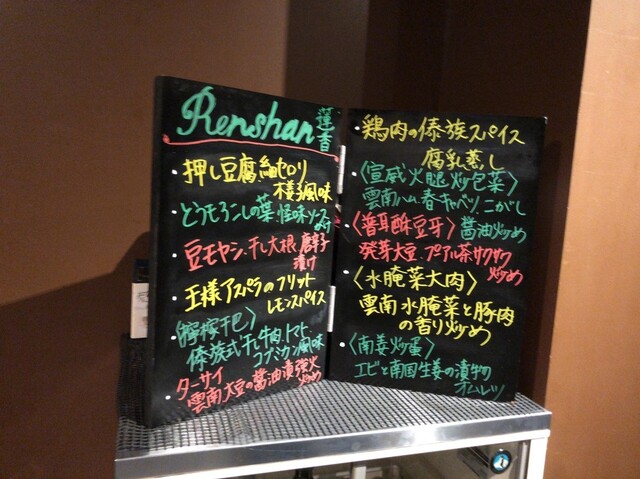 Renshan
蓮香
・押し豆腐細セロリ
木姜子風味
・とうもろこしの葉 怪味ソース
・豆モヤシ、干し大根 唐辛子
漬け
・王様アスパラのフリット
レモンスパイス
〈檸檬干巴〉
・傣族式干し牛肉、トマト
コブミカン風味
・ターサイ
雲南大豆の醤油漬強火
炒め
・鶏肉の傣族スパイス
腐乳蒸し
・〈宣威火腿炒包菜〉
雲南ハム、春キャベツ、こがし
醤油炒め
・〈普洱酥豆芽〉
発芽大豆、プアル茶サクサク
炒め
・〈水腌菜大肉〉
雲南水腌菜と豚肉
の香り炒め
・〈南姜炒蛋〉
エビと南国生姜の漬物の
オムレツ